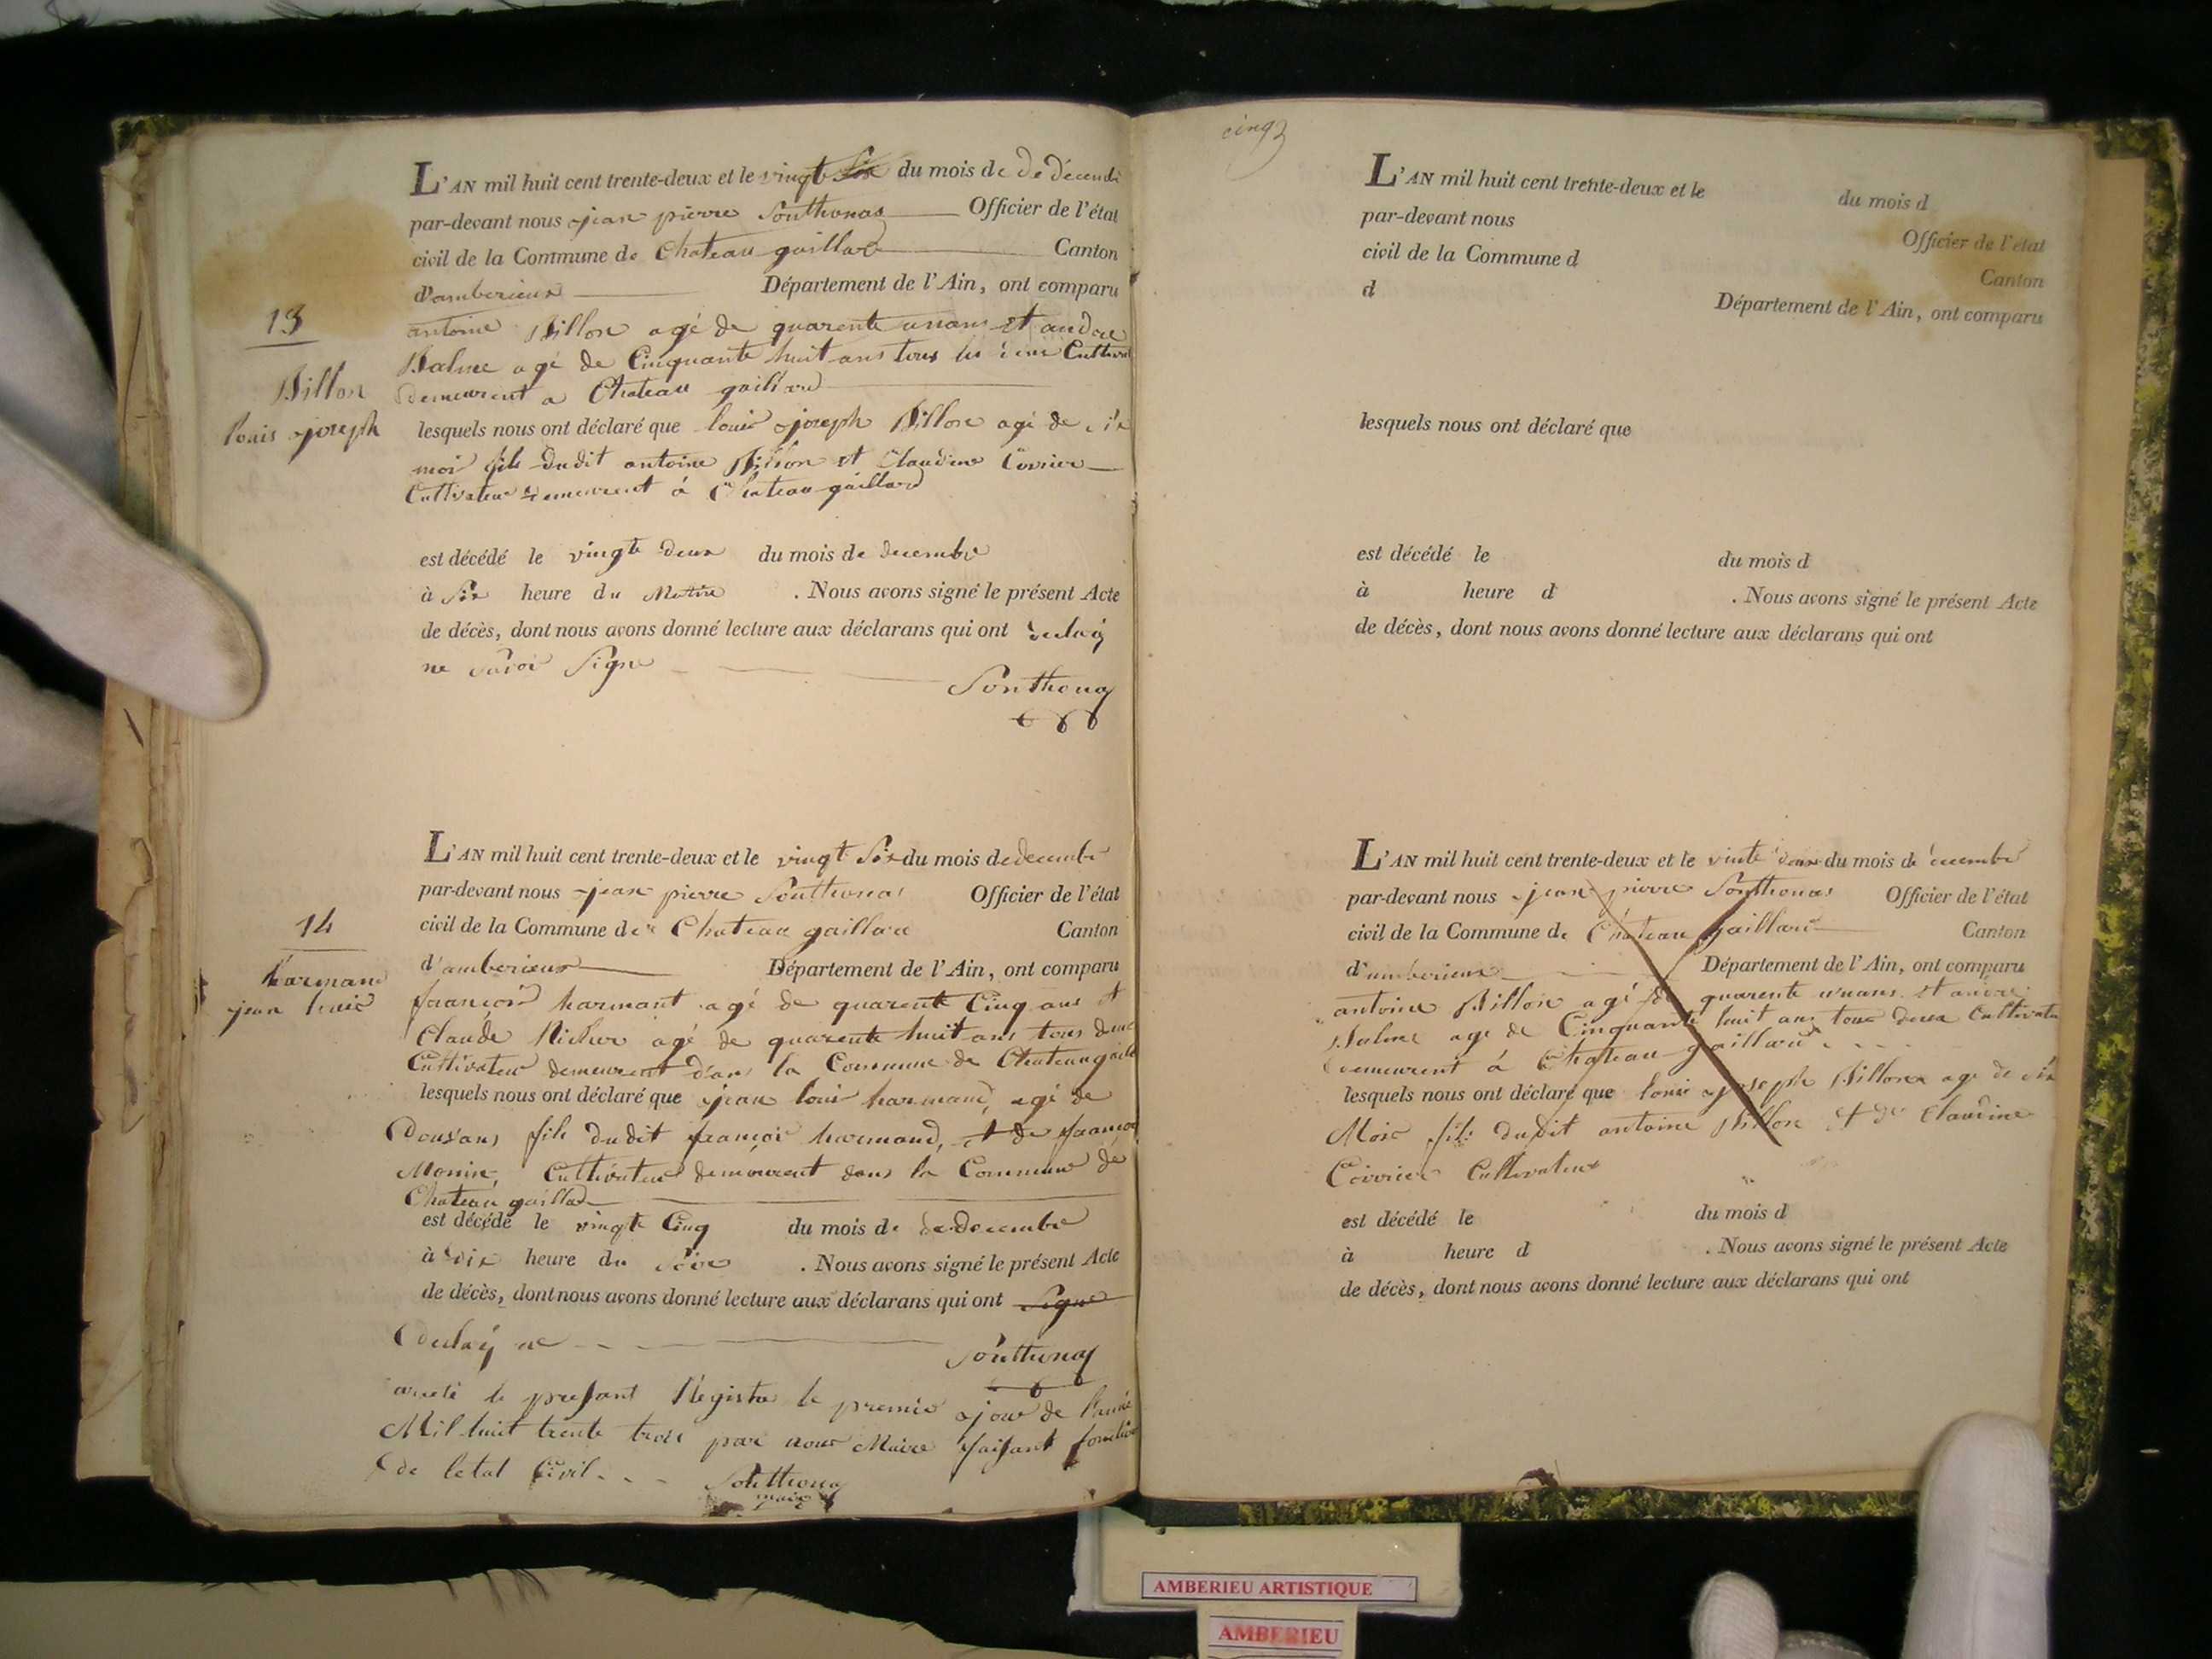 L'AN mil huit cent trente-deux et le vingt six du mois de de décemb
par-devant nous jean pierre Southonas Officier de l'état
civil de la Commune de Chateau gaillard Canton
d'amberieux Département de l'Ain, ont comparu
13
antoine Billon agé de quarente unans et andre
Balme agé de Cinquante huit ans tous les deux Cultivat
demeurent a Chateau gailiard
Billon
louis joseph
lesquels nous ont déclaré que louis joseph Billon agé de six
mois fils dudit antoine Billon et Claudine
Cultivateur demeurent á Chateau gaillard
est décédé le vingt deux du mois de decembre
à Six heure du Matin . Nous avons signé le présent Acte
de décès, dont nous avons donné lecture aux déclarans qui ont
ne savoir Signe
Southonas
L'AN mil huit cent trente-deux et le vingt Six du mois de decembr
par-devant nous jean pierre Southonas Officier de l'état
civil de la Commune de Chateau gaillard Canton
14
d'amberieux Département de l'Ain, ont comparu
harmand
jean louis
françois harmant agé de quarente Cinq ans et
Claude agé de quarente huit ans tous deux
Cultivateur demeurent dans la Commune de Chateaugaila
lesquels nous ont déclaré que jean louis harmand, agé de
Dous'ans fils dudit françois harmand, et de françoi
Monin, Cultivateur demeurent dans la Commune de
Chateau gaillad
est décédé le vingt Cinq du mois de de decembre
à dix heure du Soir . Nous avons signé le présent Acte
de décès, dont nous avons donné lecture aux déclarans qui ont Signé
ne
Southonas
areté le presant Registre le premie jour de
Mil huit trente trois par nous Maire faisant
de letat Civil
Southonas
maire
cinq
L'AN mil huit cent trente-deux et le du mois d
par-devant nous Officier de l'état
civil de la Commune d Canton
d Département de l'Ain, ont comparu
lesquels nous ont déclaré que
est décédé le du mois d
à heure d . Nous avons signé le présent Acte
de décès, dont nous avons donné lecture aux déclarans qui ont
L'AN mil huit cent trente-deux et le vinte deux du mois de decembr
par-devant nous jean pierre Southonas Officier de l'état
civil de la Commune de Chateau gaillard Canton
d'amberieux Département de l'Ain, ont comparu
antoine Billon agé de quarente unans et andre
Balme age de Cinquante huit ans tous deux Cultivate
demeurent á Chateau gaillard
lesquels nous ont déclaré que louis joseph Billon age de six
Mois fils dudit antoine Billon et de Claudine
Cultivateur
est décédé le du mois d
à heure d . Nous avons signé le présent Acte
de décès, dont nous avons donné lecture aux déclarans qui ont
AMBERIEU ARTISTIQUE
AMBERIEU